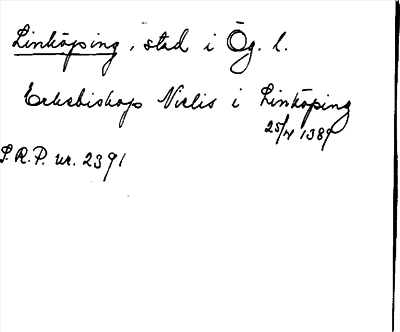 Linköping, stad i Ög. l.
Erkebiskop Niclis i Linköping
25/4 1389
S.R.P. nr. 2391